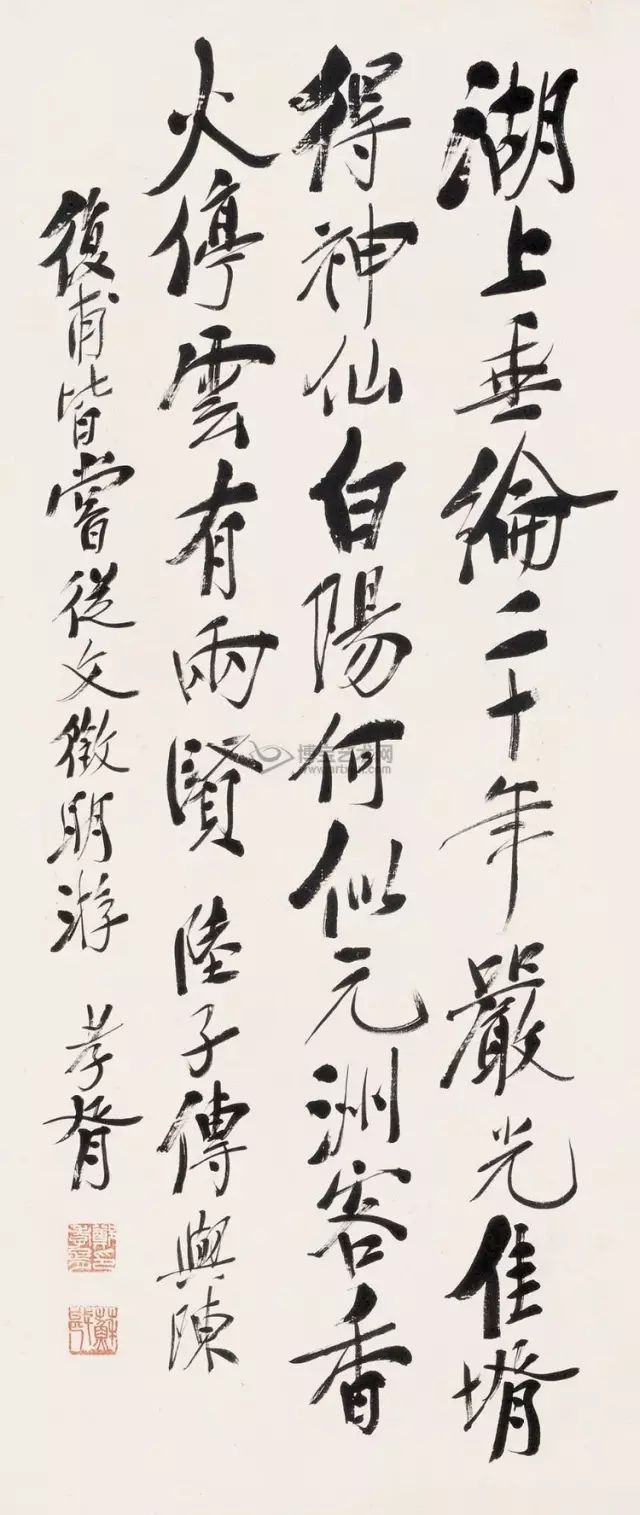 湖上垂綸二十年嚴光佳壻
得神仙白陽何似元洲客香
火停雲有兩賢 陸子傳與陳
復甫皆嘗從文徵明游 孝胥
博宝艺术网